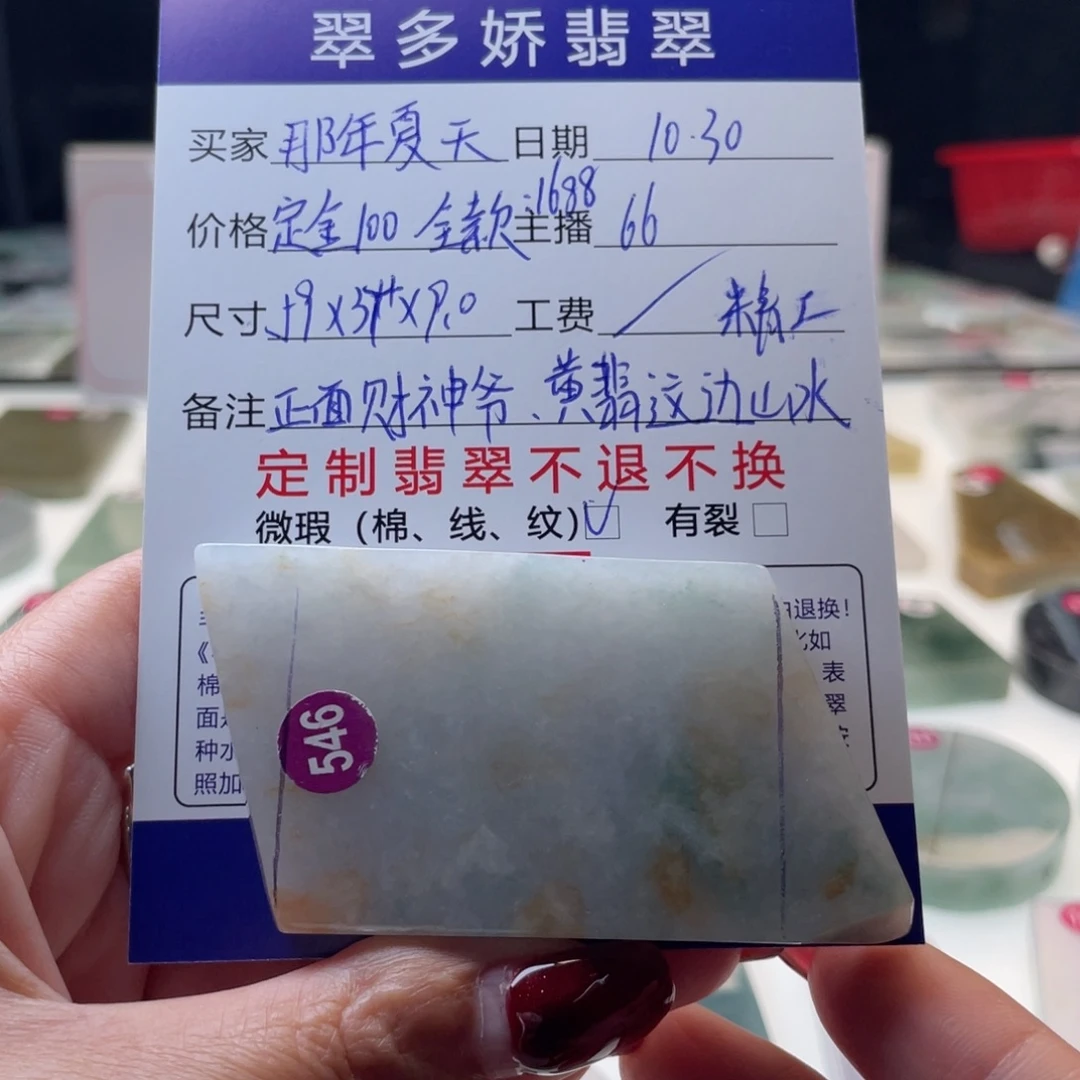 翠多娇翡翠
买家 那年夏天 日期 10.30
价格 定金100 全款:1688 主播 66
尺寸 59x37x9.0 工费 / 精工
备注 正面财神爷、黄翡这边山水
定制翡翠不退不换
微瑕（棉、线、纹）✓ 有裂□
退换！
《 比如
棉 表
面 翠
种水
照加
546